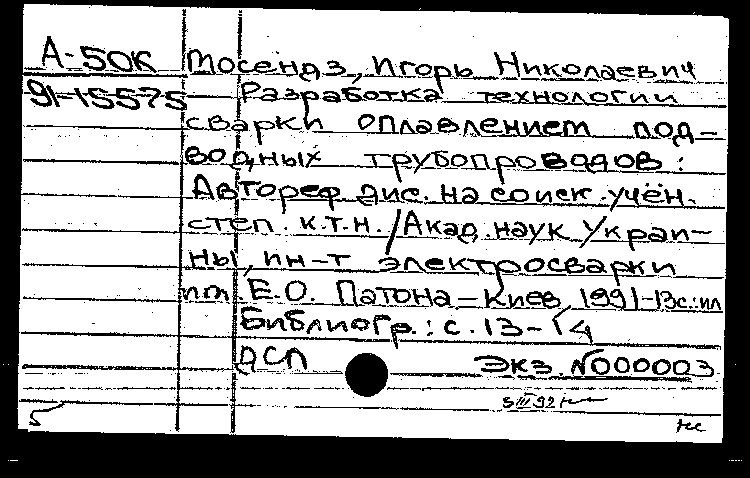 А-50К Мосендз, Игорь Николаевич
91-15575 Разработка технологии
сварки оплавлением под-
водных трубопроводов:
Автореф. дис. на соиск. учён.
степ. к.т.н./Акад. наук Украи-
ны, ин-т электросварки
им. Е.О. Патона-Киев, 1991-13с.:ил
Библиогр.: с. 13-14
ДСП Экз. №000003
5 III 92
5